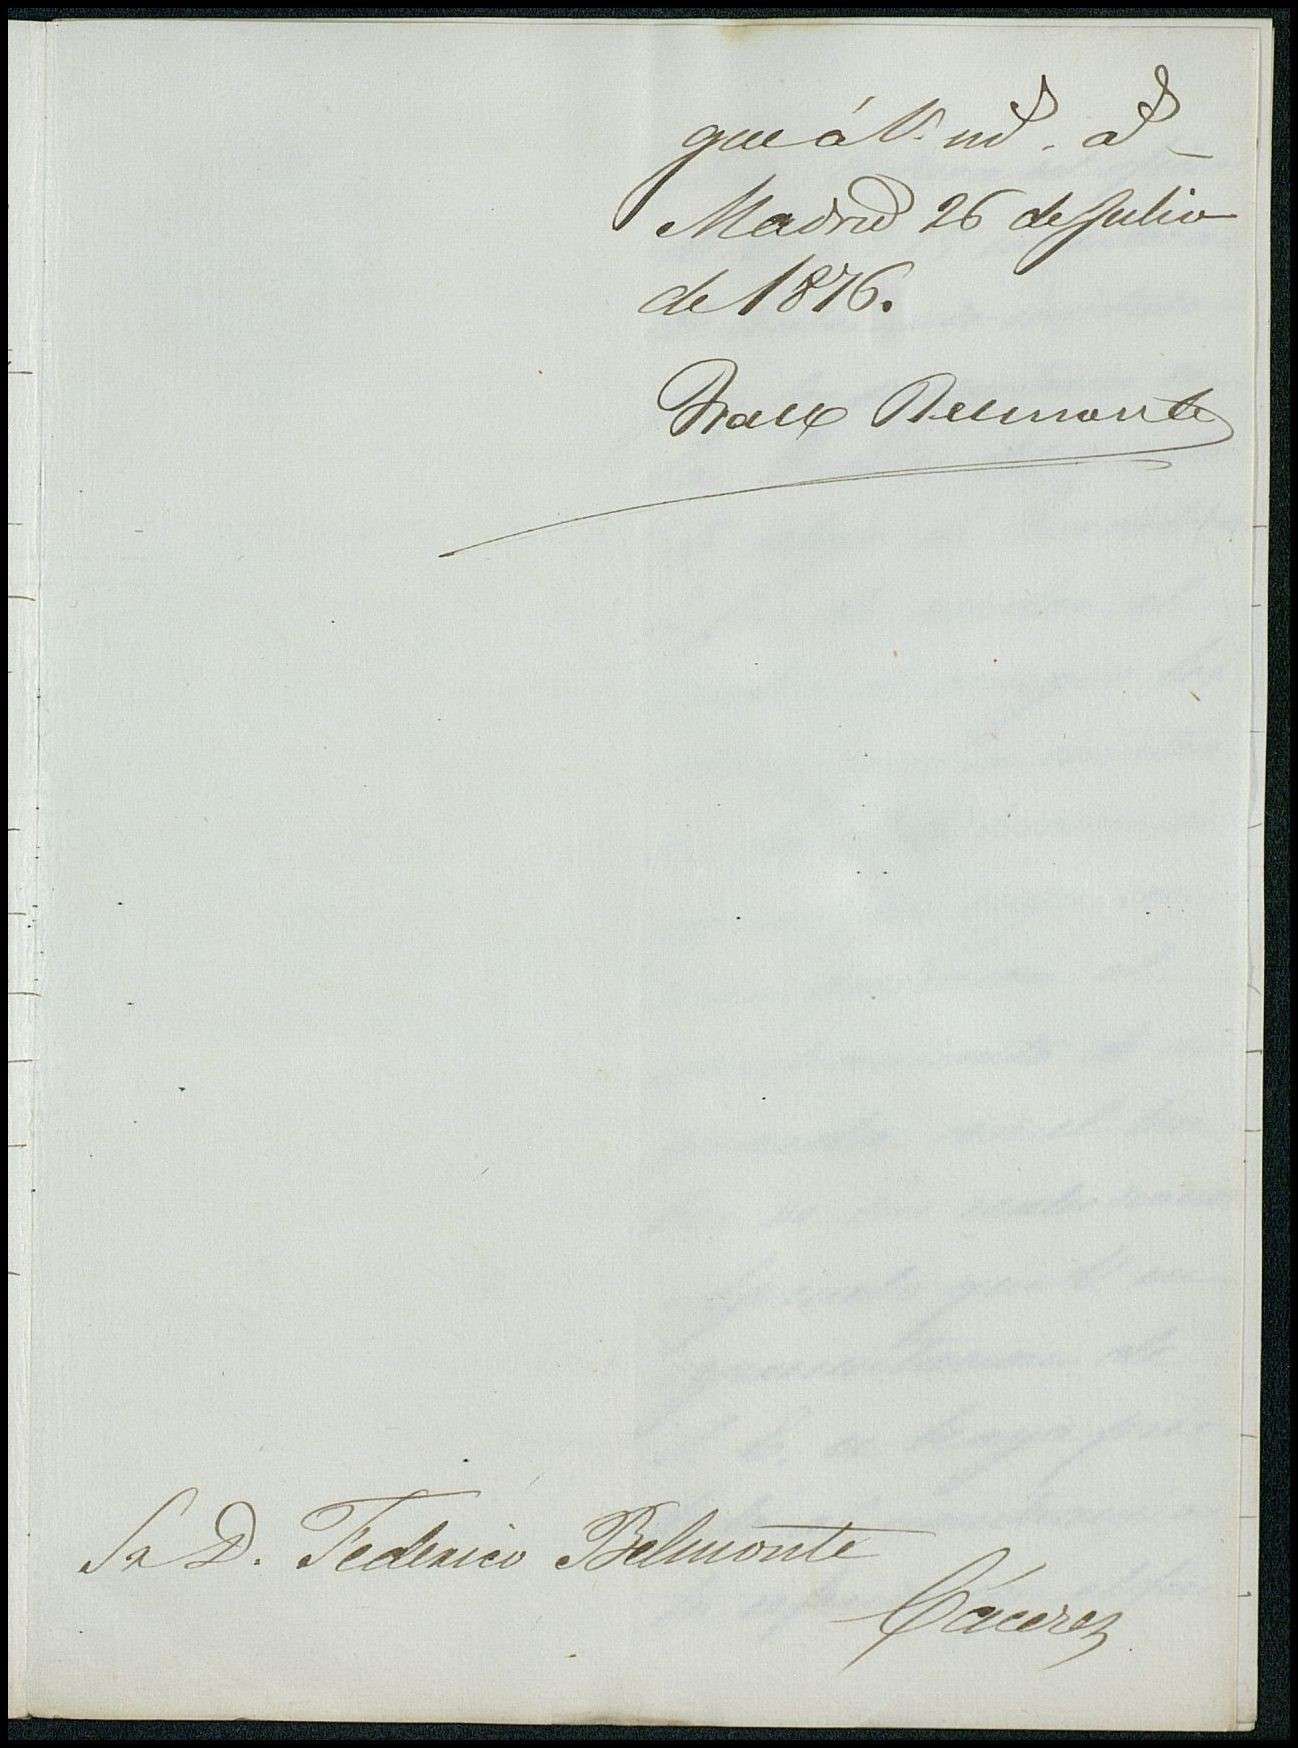 que á V. m.s a.s
Madrid 26 de Julio
de 1876.
Belmonte
Sr D. Federico Belmonte
Cáceres